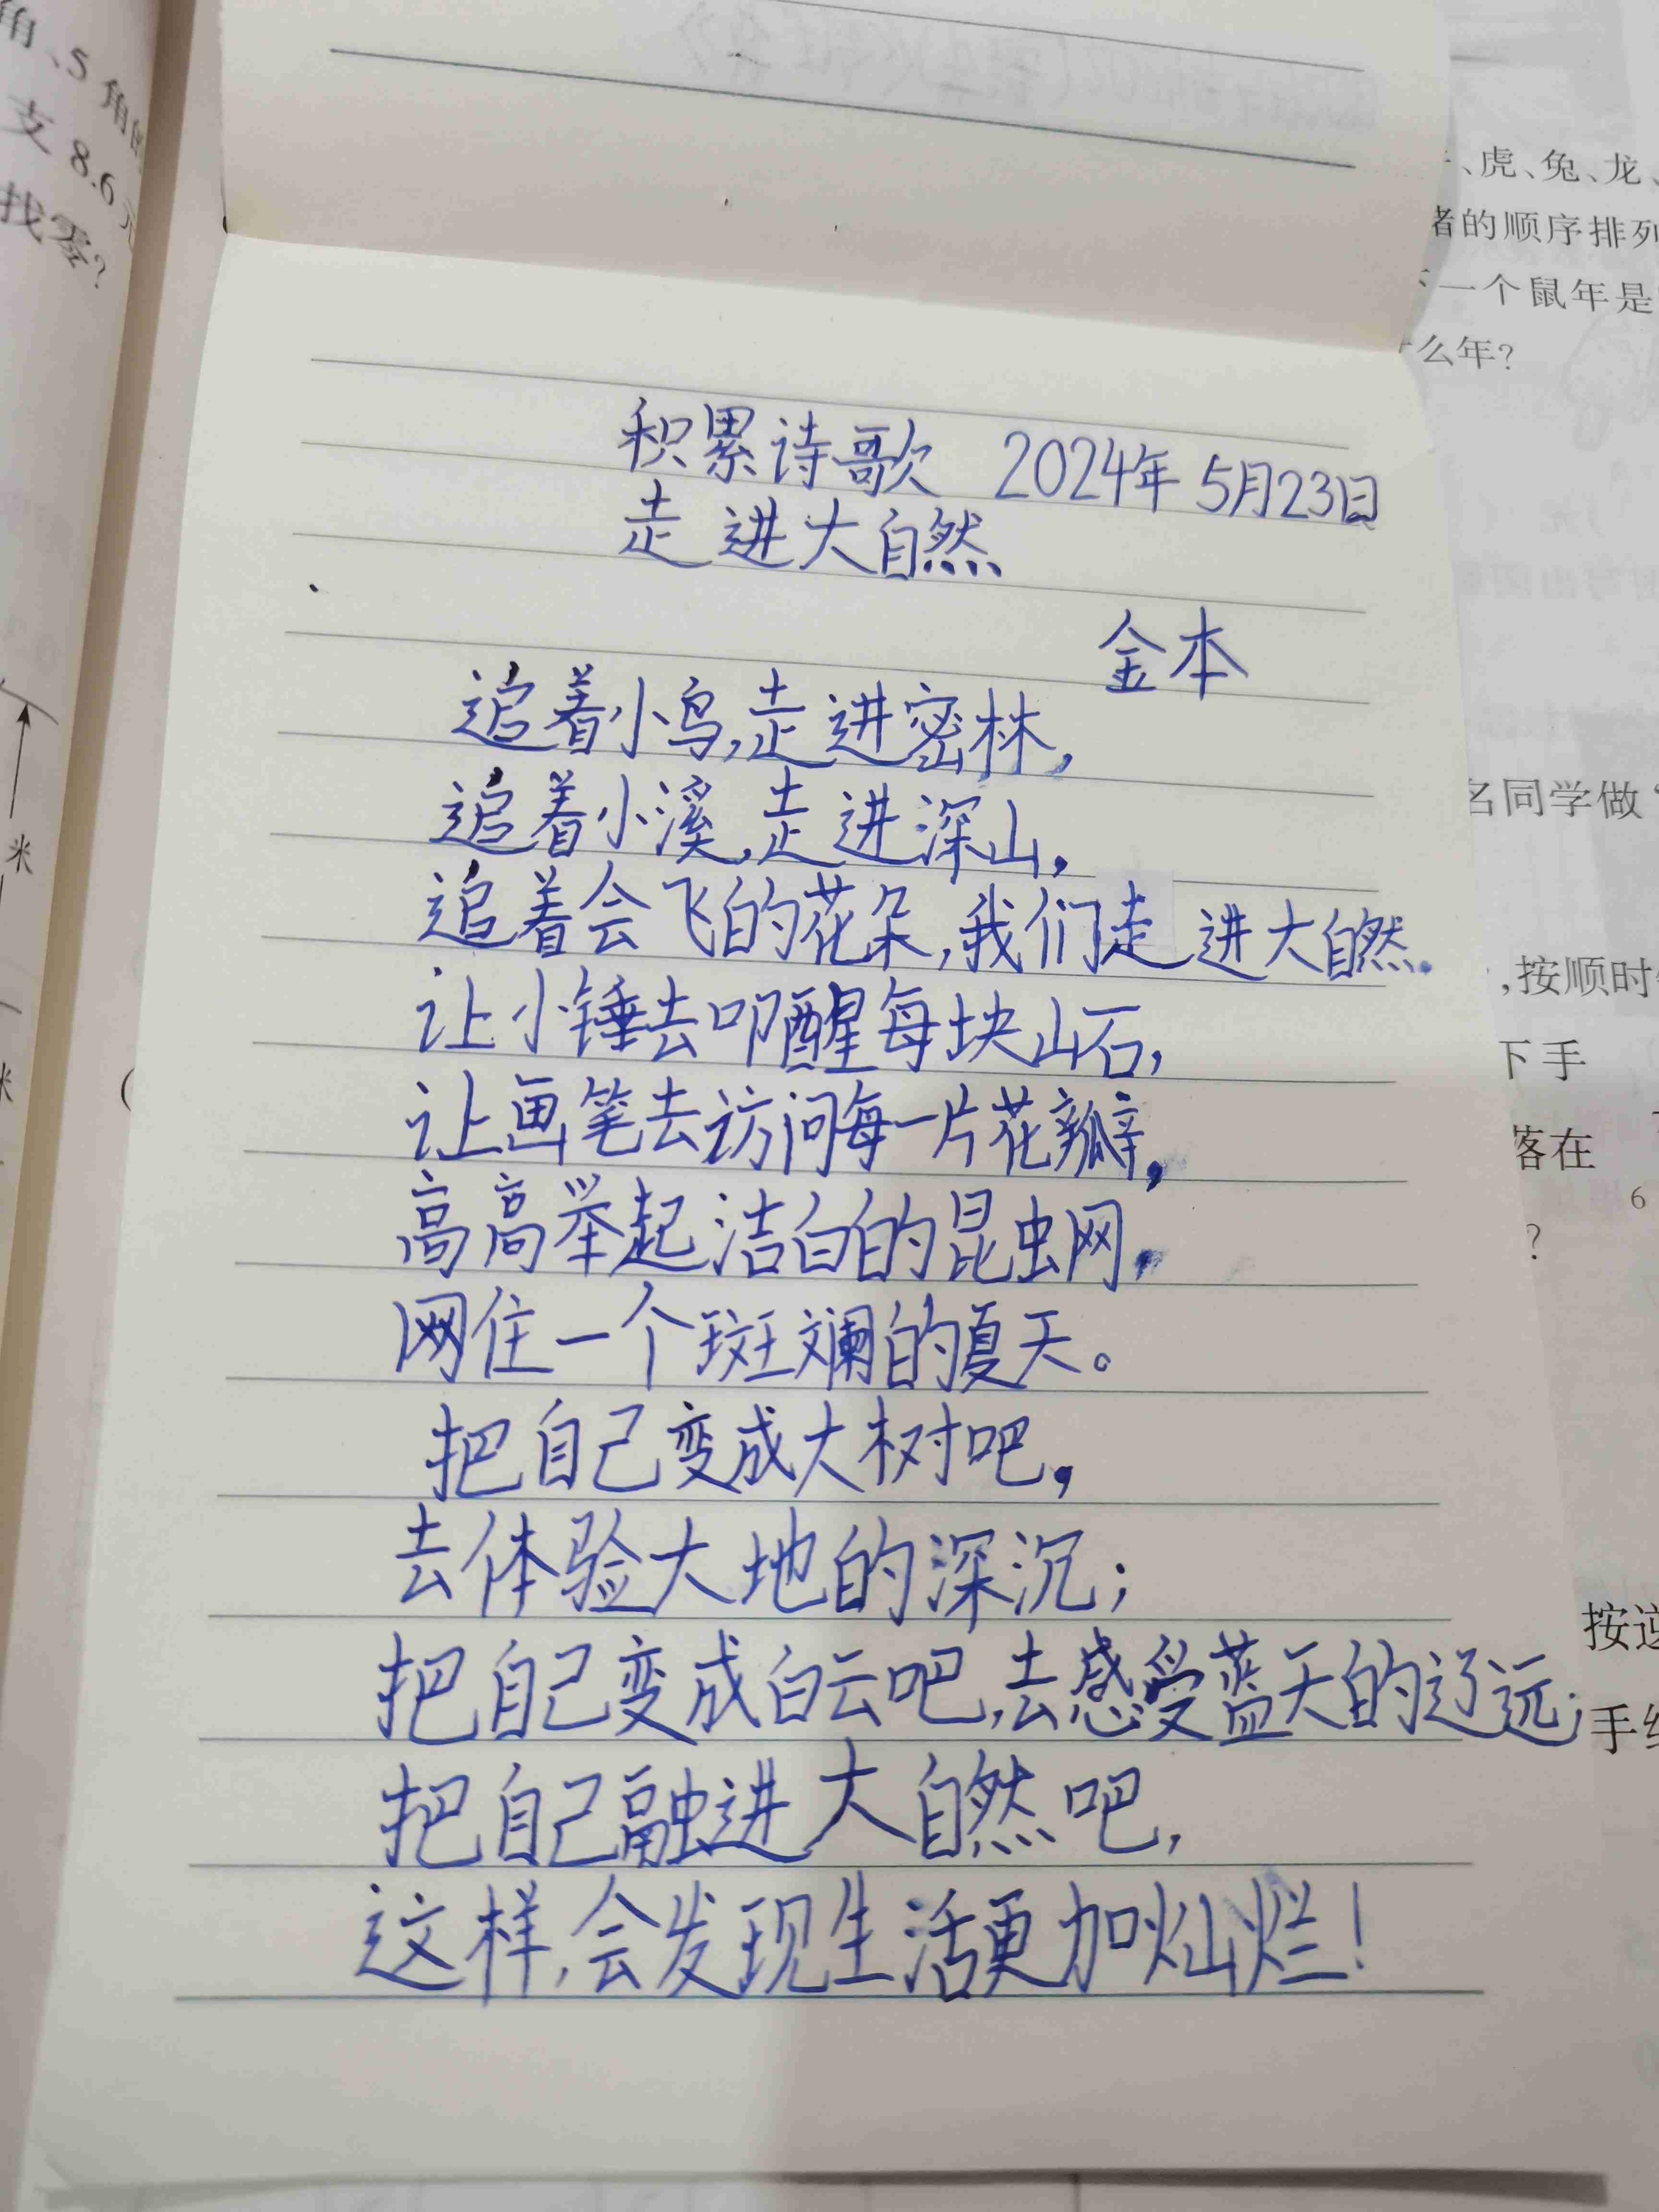 角、5角
支8.6元
找零?
米
、虎、兔、龙、
猪的顺序排列
一个鼠年是
么年?
积累诗歌 2024年5月23日
走进大自然
金本
追着小鸟,走进密林,
追着小溪,走进深山,
追着会飞的花朵,我们走进大自然。
让小锤去叩醒每块山石,
让画笔去访问每一片花瓣,
高高举起洁白的昆虫网,
网住一个斑斓的夏天。
把自己变成大树吧,
去体验大地的深沉;
把自己变成白云吧,去感受蓝天的辽远;
把自己融进大自然吧,
这样,会发现生活更加灿烂!
名同学做
,按顺时
下手
落在
6
?
按逆
手